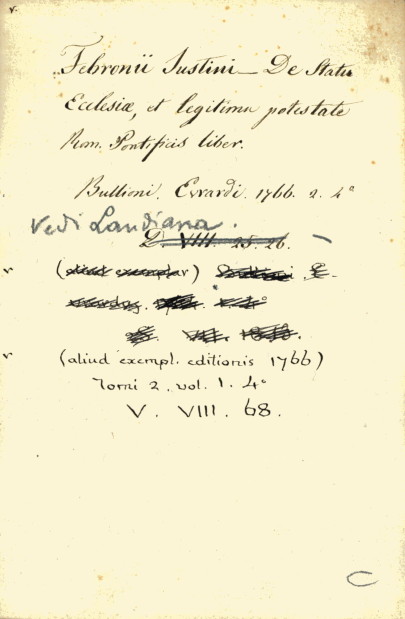 v.
Febronii Justini – De Statu
Ecclesiæ, et legitima potestate
Rom. Pontificis liber.
Bullioni. Evrardi. 1766. 2. 4°
Vedi Landiana.
D. VIII. 25. 26.
v (aliud exemplar)
v (aliud exempl. editionis 1766)
Tomi 2. vol. 1. 4°
V. VIII. 68.
C